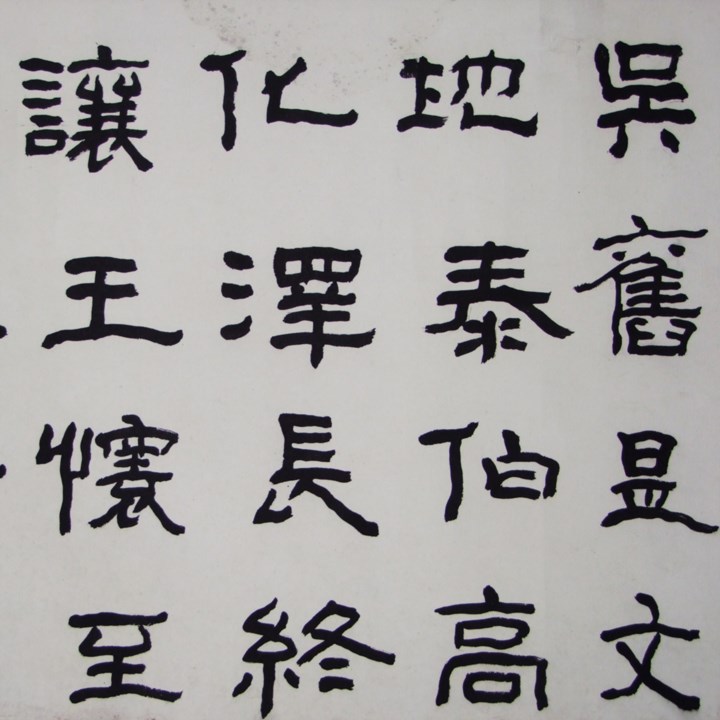 吳舊昷文
地泰伯高
化澤長終
讓王懷至